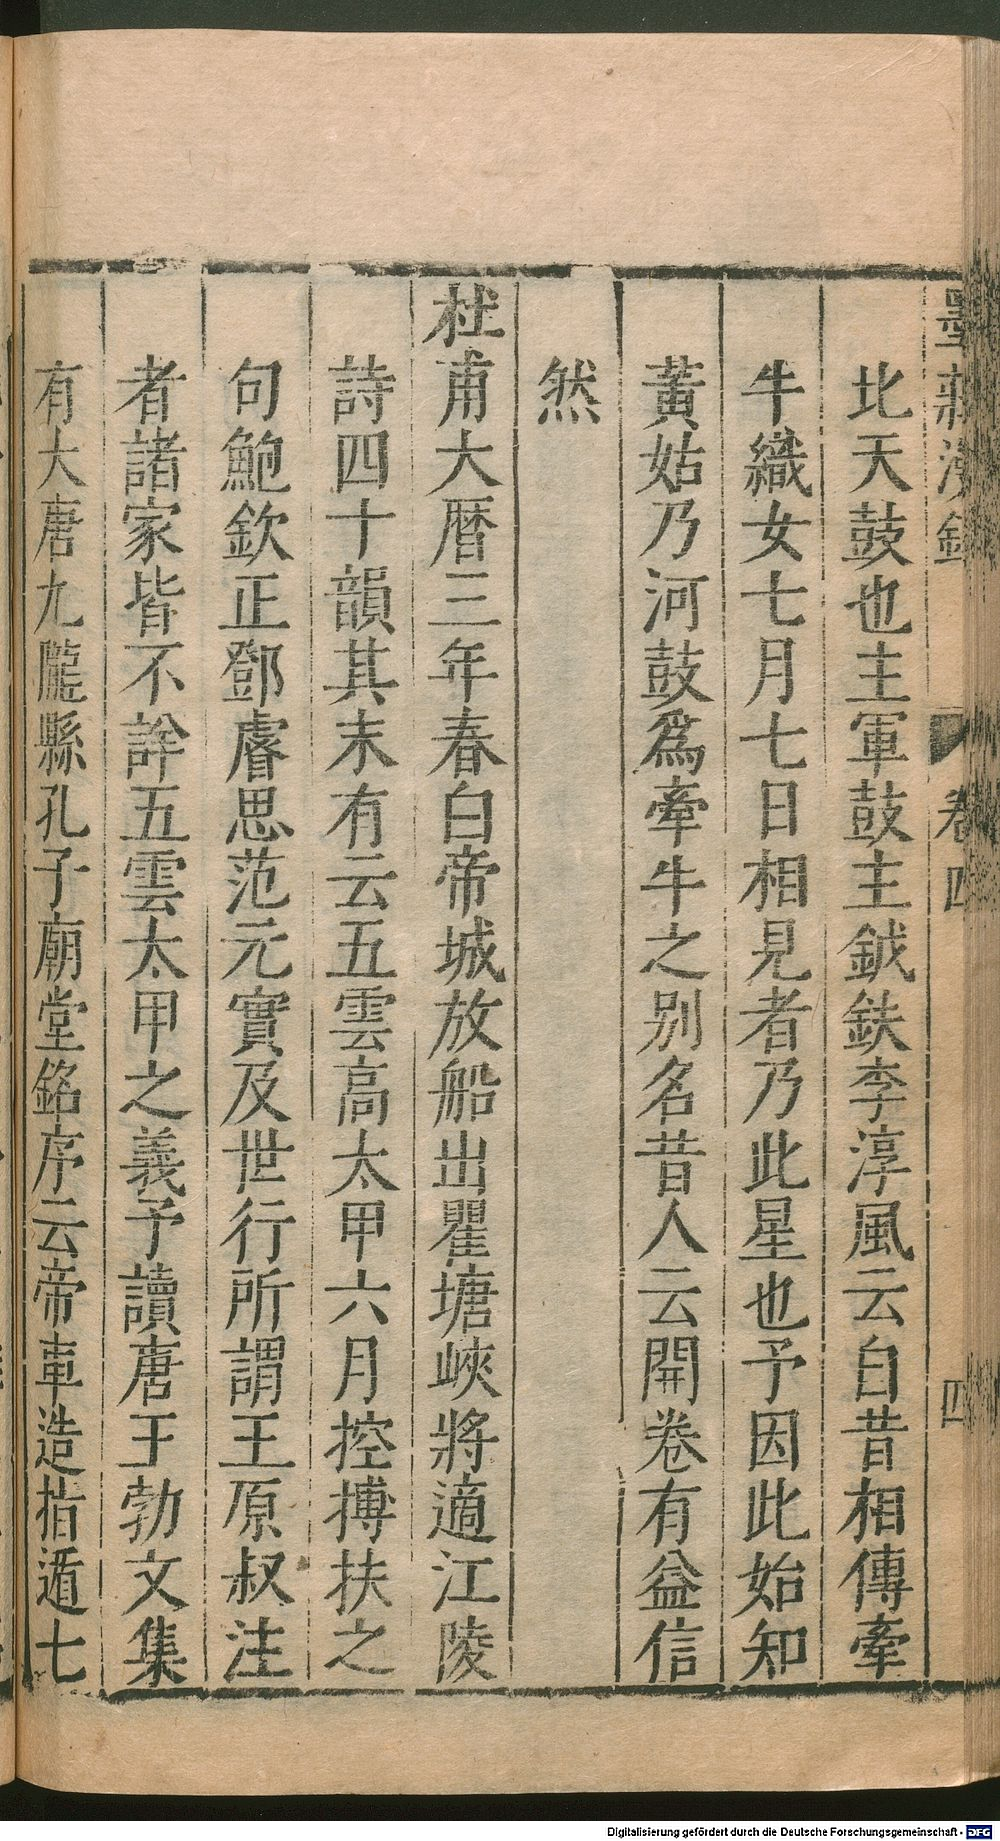 墨莊漫錄 卷四 四
北天鼓也主軍鼓主鉞鈇李淳風云自昔相傳牽
牛織女七月七日相見者乃此星也予因此始知
黃姑乃河鼓爲牽牛之别名昔人云開卷有益信
然
杜甫大暦三年春白帝城放船出瞿塘峽將適江陵
詩四十韻其末有云五雲高太甲六月控摶扶之
句鮑欽正鄧㬜思范元實及世行所謂王原叔注
者諸家皆不詳五雲太甲之義予讀唐王勃文集
有大唐九隴縣孔子廟堂銘序云帝車造指遁七
Digitalisierung gefördert durch die Deutsche Forschungsgemeinschaft - DFG